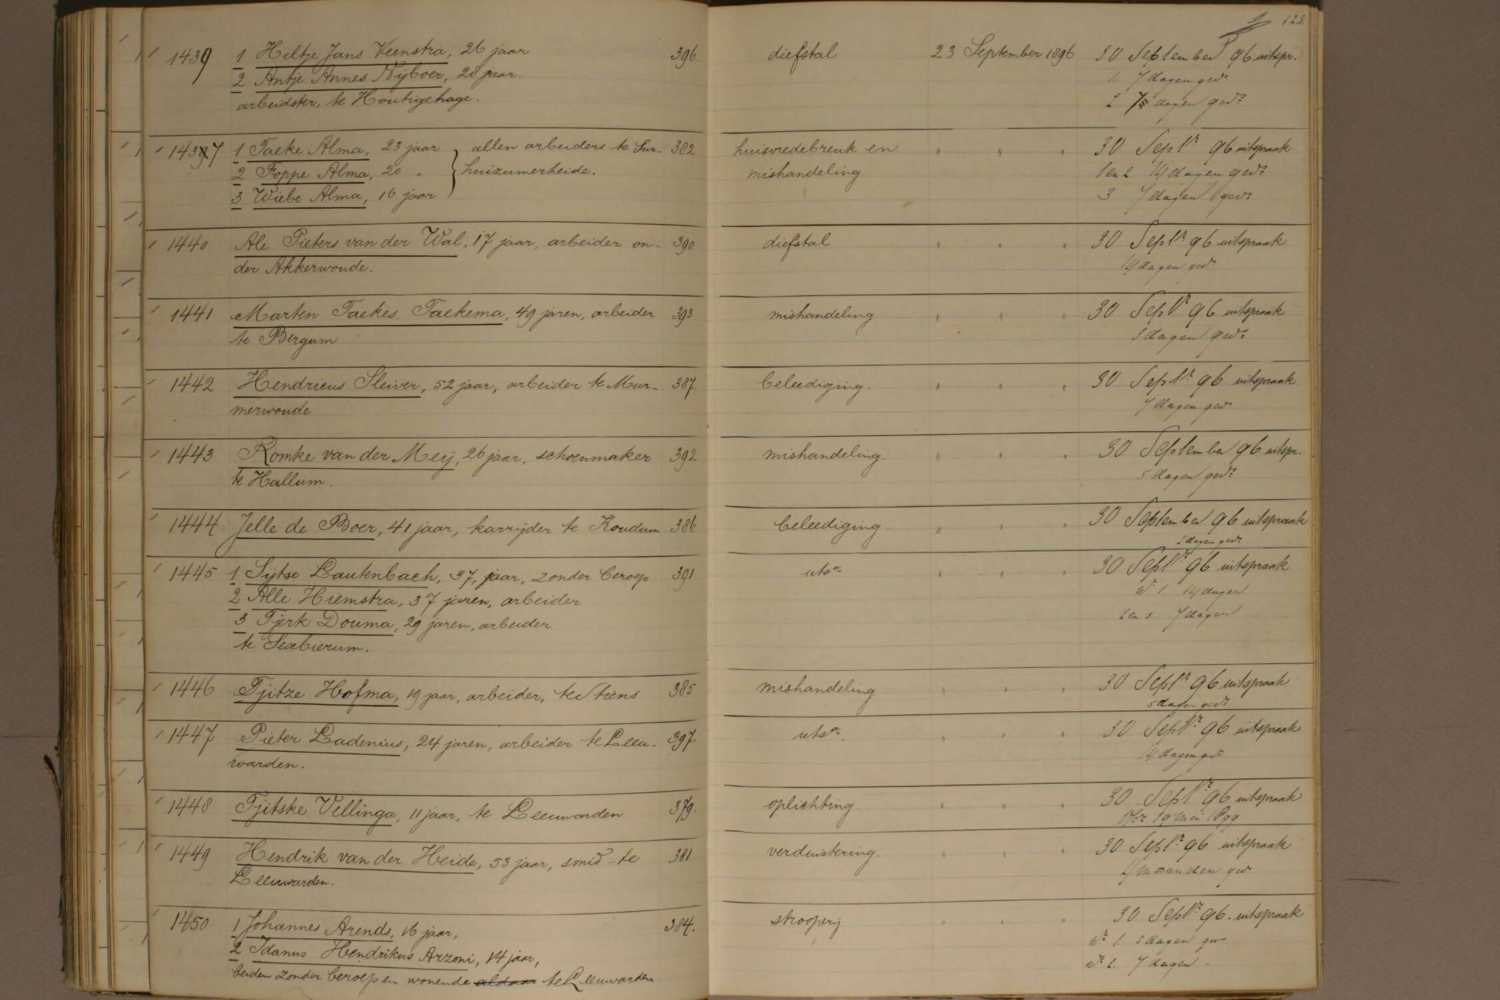 128
1439 1 Hiltje Jans Veenstra, 26 jaar 396 diefstal 23 September 1896 30 September 96 uitspr.
2 Antje Annes Nijboer, 28 jaar. 1 7 dagen gev.
arbeidster, te Houtigehage. 2 dagen gev.
1437 1 Taeke Alma, 23 jaar allen arbeiders te Sur- 382 huisvredebreuk en " " " 30 Septr 96 uitspraak
2 Foppe Alma, 20 " huizumerheide. mishandeling 1 en 2 14 dagen gev.
3 Wiebe Alma, 16 jaar 3 7 dagen gev.
1440 Ale Pieters van der Wal, 17 jaar, arbeider on- 390 diefstal " " " 30 Septr 96 uitspraak
der Akkerwoude. 14 dagen gev.
1441 Marten Taekes Taekema, 49 jaren, arbeider 393 mishandeling " " " 30 Septr 96 uitspraak
te Bergum dagen gev.
1442 Hendricus Sleiver, 52 jaar, arbeider te Mur- 387 beleediging. " " " 30 Septr 96 uitspraak
merwoude 7 dagen gev.
1443 Romke van der Meij, 26 jaar, schoenmaker 392 mishandeling " " " 30 September 96 uitspr.
te Hallum. 5 dagen gev.
1444 Jelle de Boer, 41 jaar, karrijder te Koudum 386 beleediging " " " 30 September 96 uitspraak
dagen gev.
1445 1 Sijtse Lautenbach, 37, jaar, zonder beroep 391 uts. " " " 30 Septr 96 uitspraak
2 Alle Hiemstra, 37 jaren, arbeider 1 14 dagen
3 Tjerk Douma, 29 jaren, arbeider 2 en 3 7 dagen
te Sexbierum.
1446 Tjitze Hofma, 19 jaar, arbeider, te Itens 385 mishandeling " " " 30 Septr 96 uitspraak
5 dagen gev.
1447 Pieter Ladenius, 24 jaren, arbeider te Leeu- 397 uts. " " " 30 Septr 96 uitspraak
warden. 14 dagen gev.
1448 Tjitske Vellinga, 11 jaar, te Leeuwarden 379 oplichting " " " 30 Septr 96 uitspraak
1449 Hendrik van der Heide, 53 jaar, smid te 381 verduistering. " " " 30 Septr 96 uitspraak
Leeuwarden. maanden gev.
1450 1 Johannes Arends, 16 jaar, 384. strooperij " " " 30 Septr 96. uitspraak
2 Idanus Hendrikus Arzoni, 14 jaar, 1. dagen gev
beiden zonder beroep en wonende aldaar te Leeuwarden 2. 7 dagen